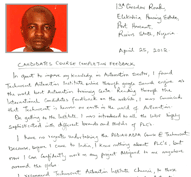 13A Gordon Road,
Elekahia Housing Estate,
Port Harcourt,
Rivers State, Nigeria
April 25, 2012.
CANDIDATES COURSE COMPLETION FEEDBACK
In quest to improve my knowledge on Automation Control, I found
Instrument Automation Institute online through google search engine as
the world best Automation training centre. Reading through the
International Candidates feedback on the website, I was convinced
that Instrument is known on earth in the world of Automation.
On getting to the Institute, I was introduced to all the latest highly
Sophisticated with different brands and models of PLCs
I have no regrets undertaking the course @ Instrument
because, before I came to India, I knew nothing about PLC's, but
now I can confidently work on any project assigned to me anywhere
around the globe.
I recommend Instrument Automation Institute Chennai, to those